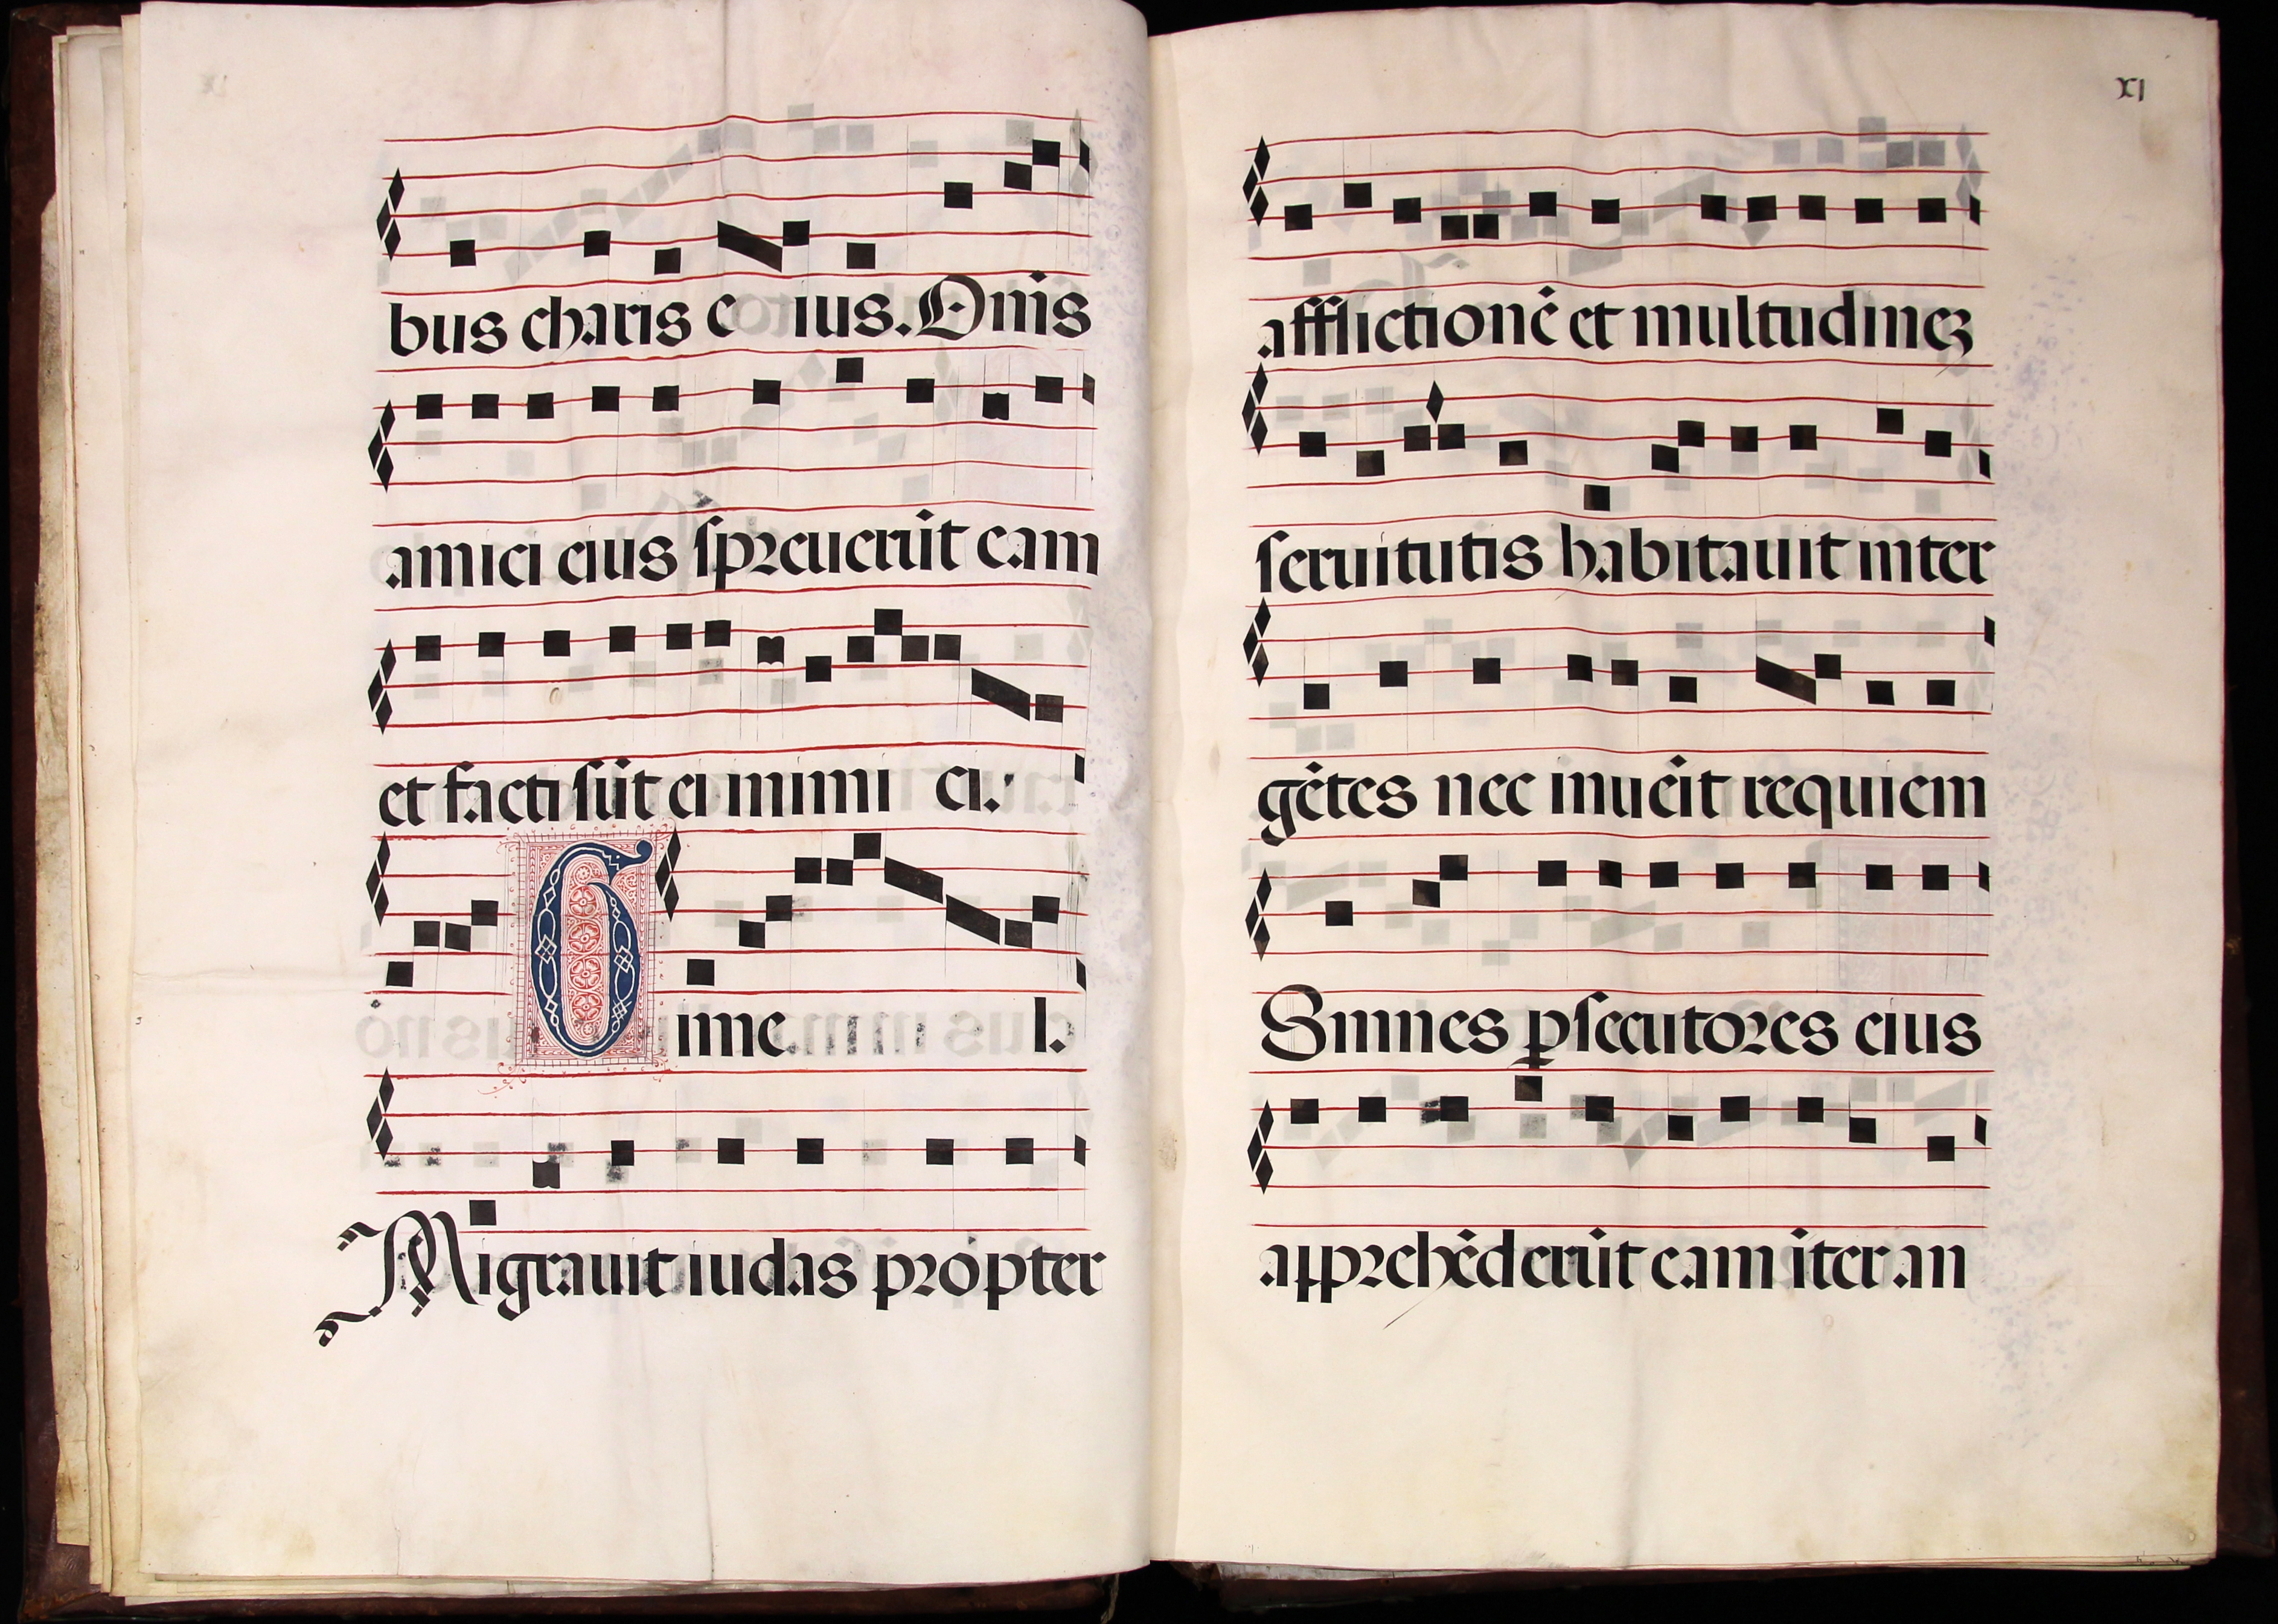 bus charis e ius. Om̃s
amici eius spreuerūt eam
et facti sūt ei inimi ci.
Gime l.
Migrauit iudas propter
XI
afflictionē et multitudinez
seruitutis habitauit inter
gētes nec inuēit requiem
Omnes p̱secutores eius
apprehēderūt eam īter an